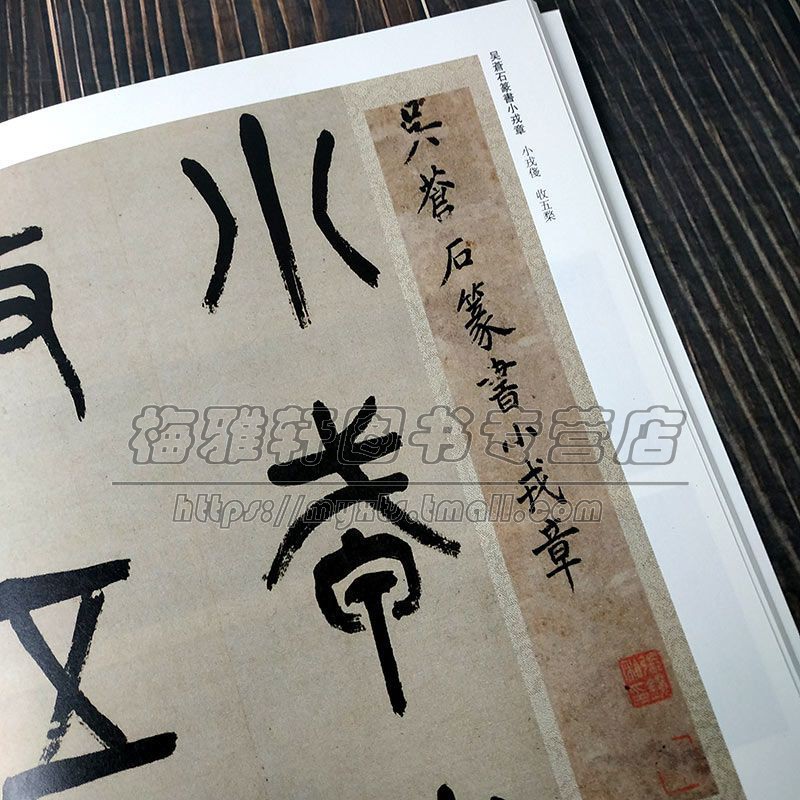 吴蒼石篆書小戎章 小戎俴 收五楘
吳蒼石篆書小戎章
小戎
五
梅雅轩图书专营店
https://myxts.tmall.com